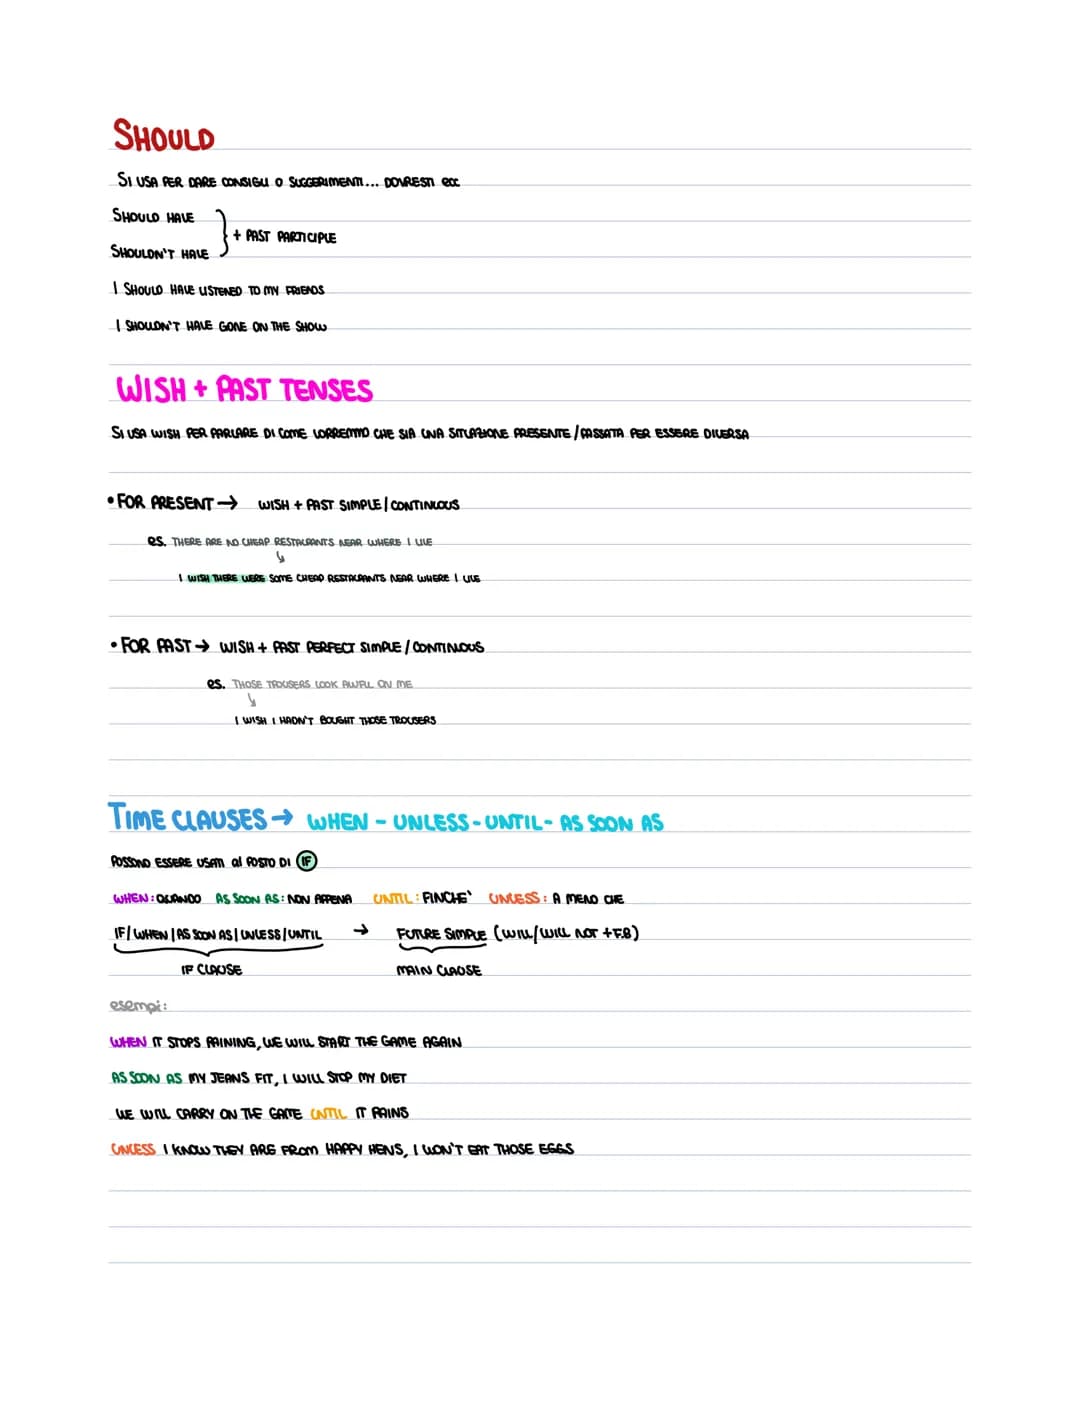 SHOULD
SI USA PER DARE CONSIGLI O SUGGERIMENTI... DOVRESTI ecc
SHOULD HAVE
+ PAST PARTICIPLE
SHOULDN'T HAVE
I SHOULD HAVE LISTENED TO MY FRIENDS
I SHOULDN'T HAVE GONE ON THE SHOW
WISH + PAST TENSES
SI USA WISH PER PARLARE DI COME VORREMMO CHE SIA UNA SITUAZIONE PRESENTE / PASSATA PER ESSERE DIVERSA
• FOR PRESENT → WISH + PAST SIMPLE / CONTINUOUS
es. THERE ARE NO CHEAP RESTAURANTS NEAR WHERE I LIVE
I WISH THERE WERE SOME CHEAP RESTAURANTS NEAR WHERE I LIVE
• FOR PAST → WISH + PAST PERFECT SIMPLE / CONTINUOUS
es. THOSE TROUSERS LOOK AWFUL ON ME
I WISH I HADN'T BOUGHT THOSE TROUSERS
TIME CLAUSES → WHEN - UNLESS - UNTIL - AS SOON AS
POSSONO ESSERE USATI al POSTO DI IF
WHEN: QUANDO AS SOON AS: NON APPENA UNTIL: FINCHE' UNLESS: A MENO CHE
IF / WHEN / AS SOON AS / UNLESS / UNTIL → FUTURE SIMPLE (WILL / WILL NOT + F.B)
IF CLAUSE MAIN CLAUSE
esempi:
WHEN IT STOPS RAINING, WE WILL START THE GAME AGAIN
AS SOON AS MY JEANS FIT, I WILL STOP MY DIET
WE WILL CARRY ON THE GAME UNTIL IT RAINS
UNLESS I KNOW THEY ARE FROM HAPPY HENS, I WON'T EAT THOSE EGGS